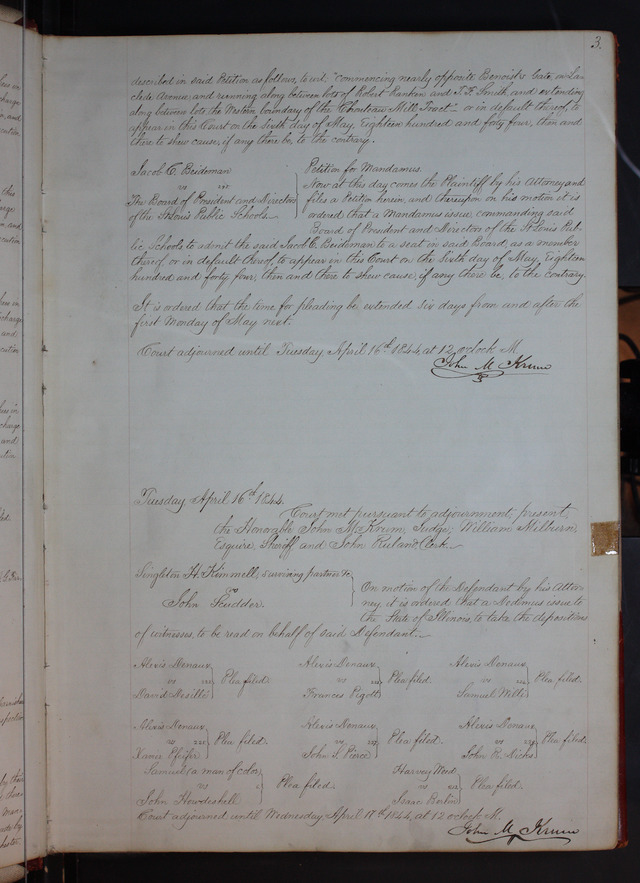 3.
described in said Petition as follows, to wit: "commencing nearly opposite Benoist's Gate, on La-
clede Avenue and running along between lots of Robert Rankin and J. F. Smith and extending
along between lots the Western boundary of the Chouteau Mill Tract" or in default thereof, to
appear in this Court on the Sixth day of May, Eighteen hundred and forty four, then and
there to shew cause, if any there be, to the contrary.
Jacob C. Beideman
vs
The Board of President and Directors
of the St Louis Public Schools
Petition for Mandamus.
Now at this day comes the Plaintiff by his Attorney and
files a Petition herein, and thereupon on his motion it is
ordered that a Mandamus issue, commanding said
Board of President and Director of the St Louis Pub-
lic Schools to admit the said Jacob C. Beideman to a seat in said Board, as a member
thereof or in default thereof, to appear in this Court on the Sixth day of May, Eighteen
hundred and forty four, then and there to shew cause, if any there be, to the contrary.
It is ordered that the time for pleading be extended six days from and after the
first Monday of May next.
Court adjourned until Tuesday April 16th 1844, at 12 oclock M.
John M Krum
Tuesday, April 16th 1844.
Court met pursuant to adjournment, present,
the Honorable John M Krum, Judge, William Milburn,
Esquire, Sheriff and John Ruland, Clerk.
Singleton H. Kimmell, surviving partner &c
vs
John Scudder.
On motion of the Defendant by his Attor-
ney, it is ordered that a Dedimus issue to
the State of Illinois, to take the depositions
of witnesses, to be read on behalf of said Defendant.
Alexis Denaux
vs
David Desilli
Plea filed.
Alexis Denaux
vs
Frances Pigott
Plea filed.
Alexis Denaux
vs
Samuel Willi
Plea filed.
Alexis Denaux
vs
Xavier Pfeifer
Plea filed.
Alexis Denaux
vs
John S. Pierce
Plea filed.
Alexis Denaux
vs
John R.
Plea filed.
Samuel, a man of color,
vs
John Howdeshell
Plea filed.
Harvey Word
vs
Isaac
Plea filed.
Court adjourned until Wednesday, April 17th 1844, at 12 oclock M.
John M Krum